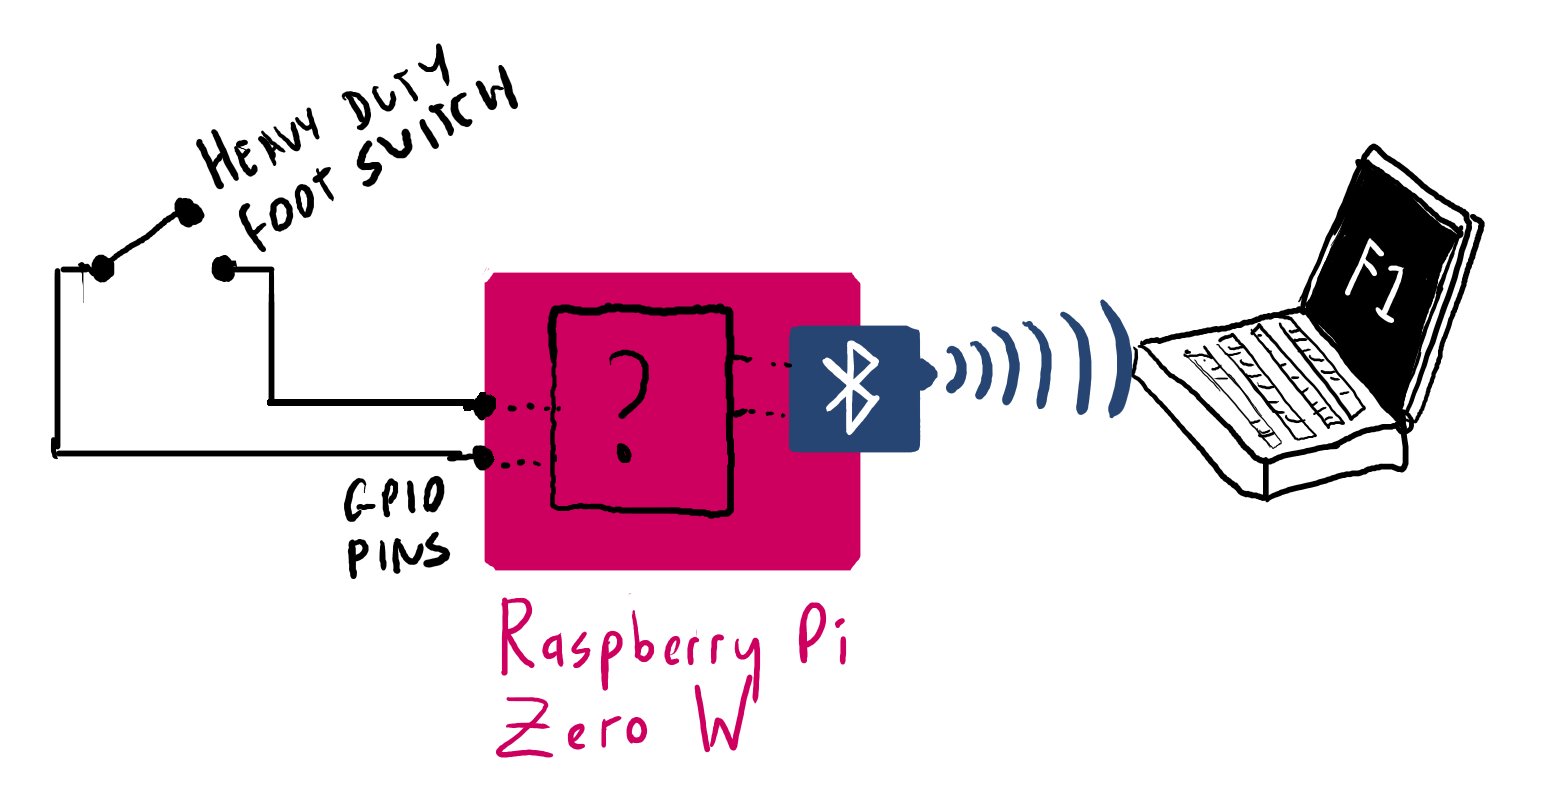 HEAVY DUTY
FOOT SWITCH
?
F1
GPIO
PINS
Raspberry Pi
Zero W